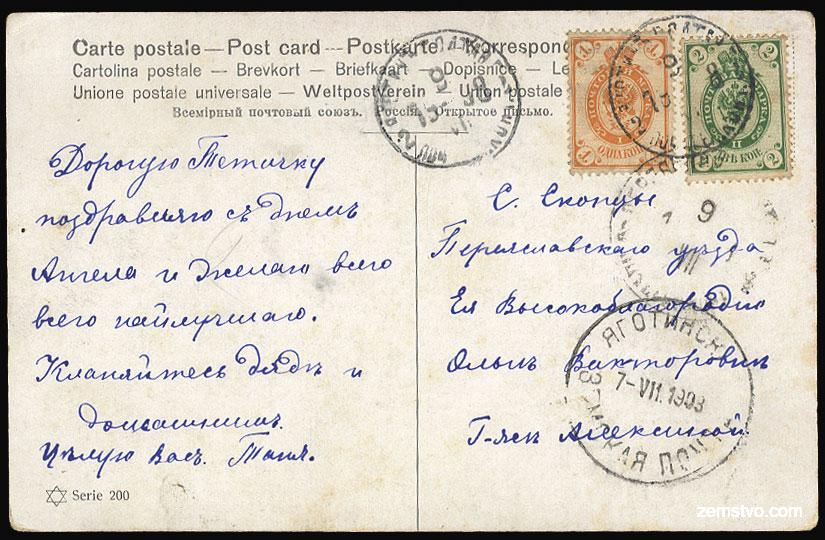 Carte postale — Post card — Postkarte — Korrespond
Cartolina postale — Brevkort — Briefkaart — Dopisnice — Le
Unione postale universale — Weltpostverein — Union postale
Всемірный почтовый союзъ. Россія. Открытое письмо.
1
ПОЧТОВАЯ МАРКА
ОДНА КОП.
2
ПОЧТОВАЯ МАРКА
ДВѢ КОП.
Дорогую Тетичку
поздравляю съ днемъ
Ангела и желаю всего
всего наилучшаго.
Кланяйтесь дядѣ и
домашнимъ.
Цѣлую Васъ. Таня.
Serie 200
С. Скопцы
Переяславскаго уѣзда
Ея Высокоблагородію
Ольгѣ Викторовнѣ
Г-жѣ Алексиной
9
ЯГОТИНСК
7-VII.1908
ЗЕМСКАЯ ПОЧТА
zemstvo.com